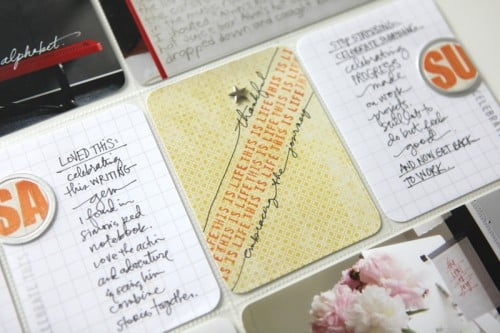 alphabet.
dropped down and caught
LOVED THIS:
celebrating
this WRITING
gem
I found in
simon's red
notebook.
Love the action
and adventure
& seeing him
combine
stories together.
SA
thankful
THIS IS LIFE THIS IS LIFE THIS IS LI
THIS IS LIFE THIS IS LIFE THIS IS LIFE
THIS IS LIFE THIS IS LIFE THIS IS LIFE
embracing the journey
STOP STRESSING.
CELEBRATE SOMETHING.
celebrating
PROGRESS
made
on work
projects.
still lots to
do but feels
good.
AND NOW GET BACK
TO WORK.
SU